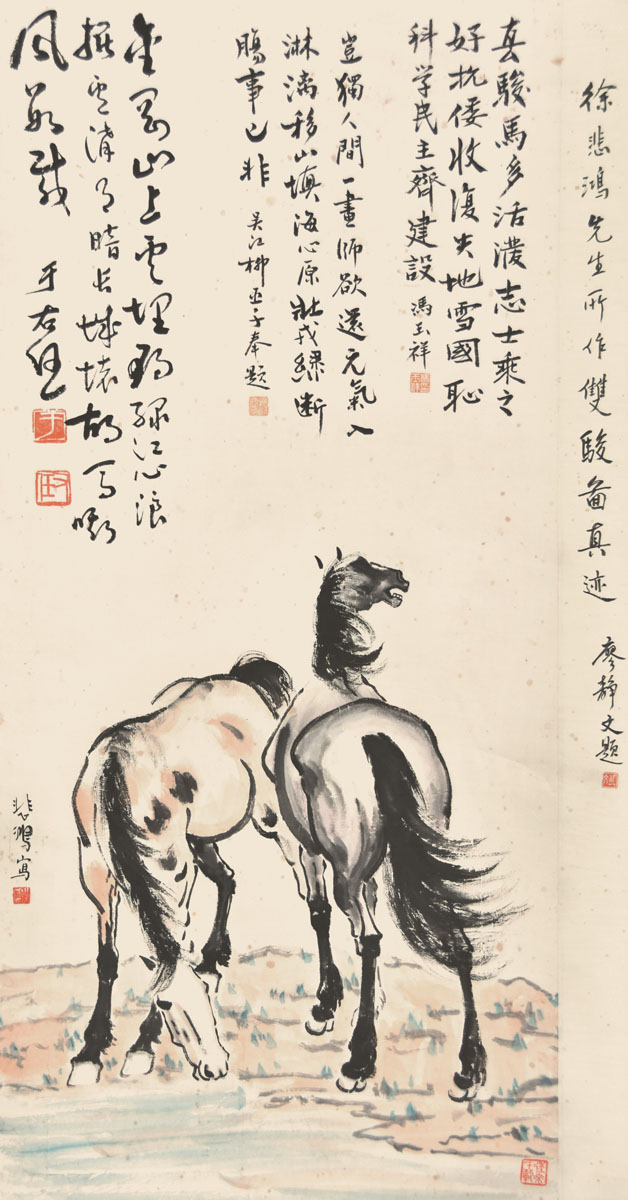 徐悲鴻先生所作雙駿圖真迹
廖靜文題
真駿馬多活潑志士乘之
好抗倭收復失地雪國恥
科学民主齊建設 馮玉祥
豈獨人間一畫師欲還元氣入
淋漓移山填海心原壯斷
腸事已非 吴江柳亚子奉題
金剛山上雲埋鴨綠江心浪
擺蘆溝月暗長城壞胡馬嘶
風數載 于右任
悲鴻寫